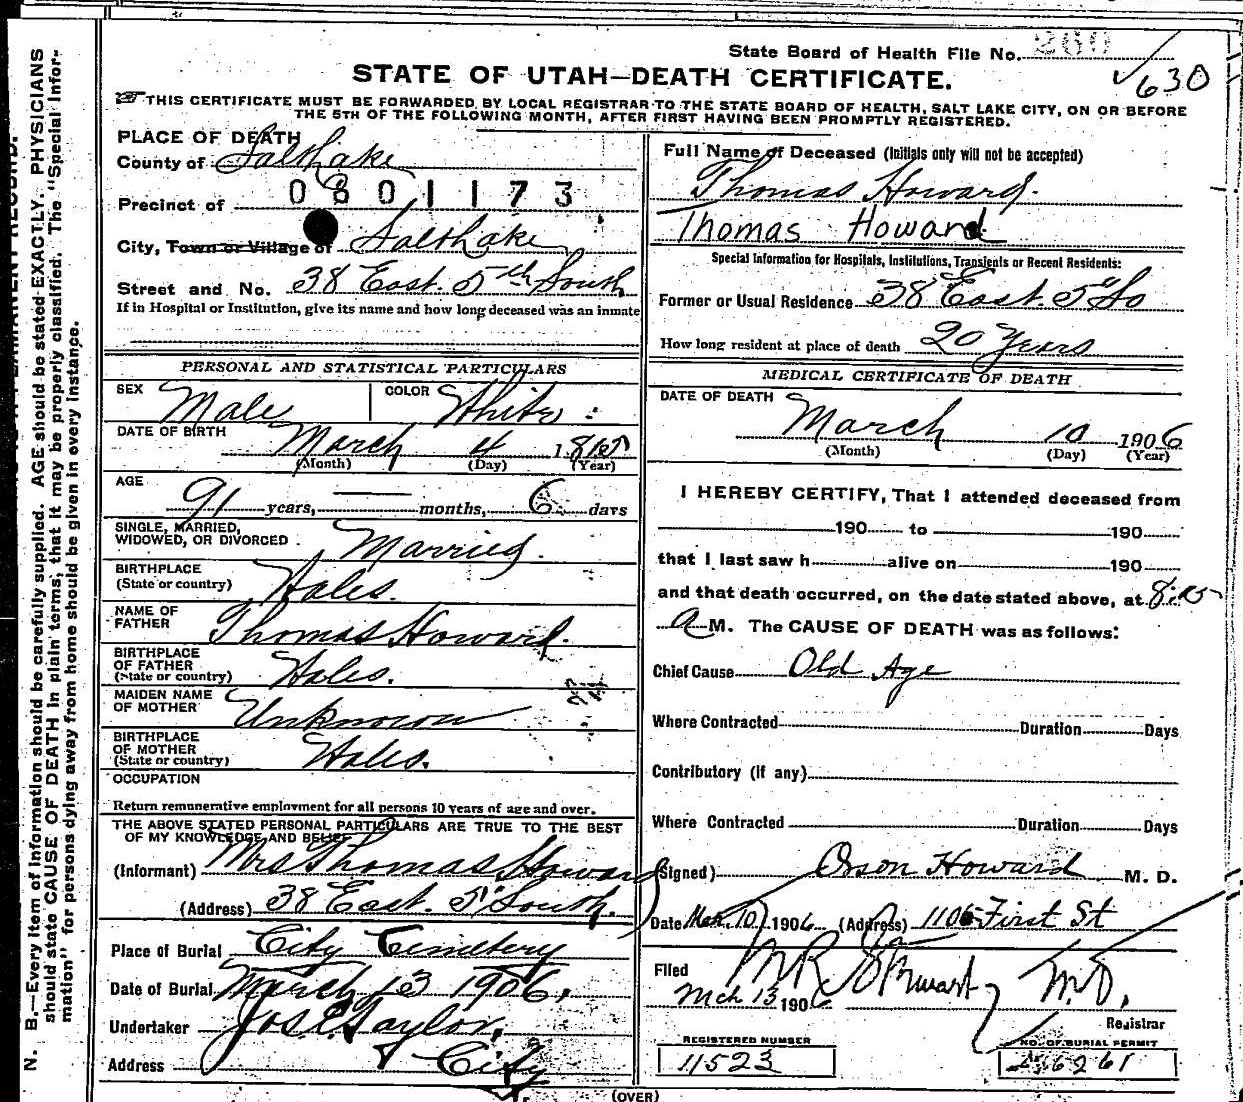 State Board of Health File No. 260
630
STATE OF UTAH—DEATH CERTIFICATE.
THIS CERTIFICATE MUST BE FORWARDED BY LOCAL REGISTRAR TO THE STATE BOARD OF HEALTH, SALT LAKE CITY, ON OR BEFORE
THE 5TH OF THE FOLLOWING MONTH, AFTER FIRST HAVING BEEN PROMPTLY REGISTERED.
N. B.—Every item of information should be carefully supplied. AGE should be stated EXACTLY. PHYSICIANS
should state CAUSE OF DEATH in plain terms, that it may be properly classified. The "Special Infor-
mation" for persons dying away from home should be given in every instance.
PLACE OF DEATH
County of Salt Lake
0601173
Precinct of
City, Town or Village of Salt Lake
Street and No. 38 East. 5th South
If in Hospital or Institution, give its name and how long deceased was an inmate
PERSONAL AND STATISTICAL PARTICULARS
SEX Male COLOR White
DATE OF BIRTH March 4 1815
(Month) (Day) (Year)
AGE 91 years, — months, 6 days
SINGLE, MARRIED,
WIDOWED, OR DIVORCED Married.
BIRTHPLACE
(State or country) Wales.
NAME OF
FATHER Thomas Howard.
BIRTHPLACE
OF FATHER
(State or country) Wales.
MAIDEN NAME
OF MOTHER Unknown
BIRTHPLACE
OF MOTHER
(State or country) Wales.
OCCUPATION
Return remunerative employment for all persons 10 years of age and over.
THE ABOVE STATED PERSONAL PARTICULARS ARE TRUE TO THE BEST
OF MY KNOWLEDGE AND BELIEF
(Informant) Mrs Thomas Howard
(Address) 38 East. 5" South.
Place of Burial City Cemetery
Date of Burial March 13 1906.
Undertaker Jos. E. Taylor.
Address City
Full Name of Deceased (Initials only will not be accepted)
Thomas Howard.
Thomas Howard
Special Information for Hospitals, Institutions, Transients or Recent Residents:
Former or Usual Residence 38 East. 5" So
How long resident at place of death 20 Years
MEDICAL CERTIFICATE OF DEATH
DATE OF DEATH
March 10 1906
(Month) (Day) (Year)
I HEREBY CERTIFY, That I attended deceased from
190 to 190
that I last saw h alive on 190
and that death occurred, on the date stated above, at
A M. The CAUSE OF DEATH was as follows:
Chief Cause Old Age
Where Contracted Duration Days
Contributory (if any)
Where Contracted Duration Days
(Signed) Orson Howard M. D.
Date Mar 10 1906 (Address) 1106 First St
Filed
Mch 13 1906 M.D.
Registrar
REGISTERED NUMBER
11523
NO. OF BURIAL PERMIT
(OVER)